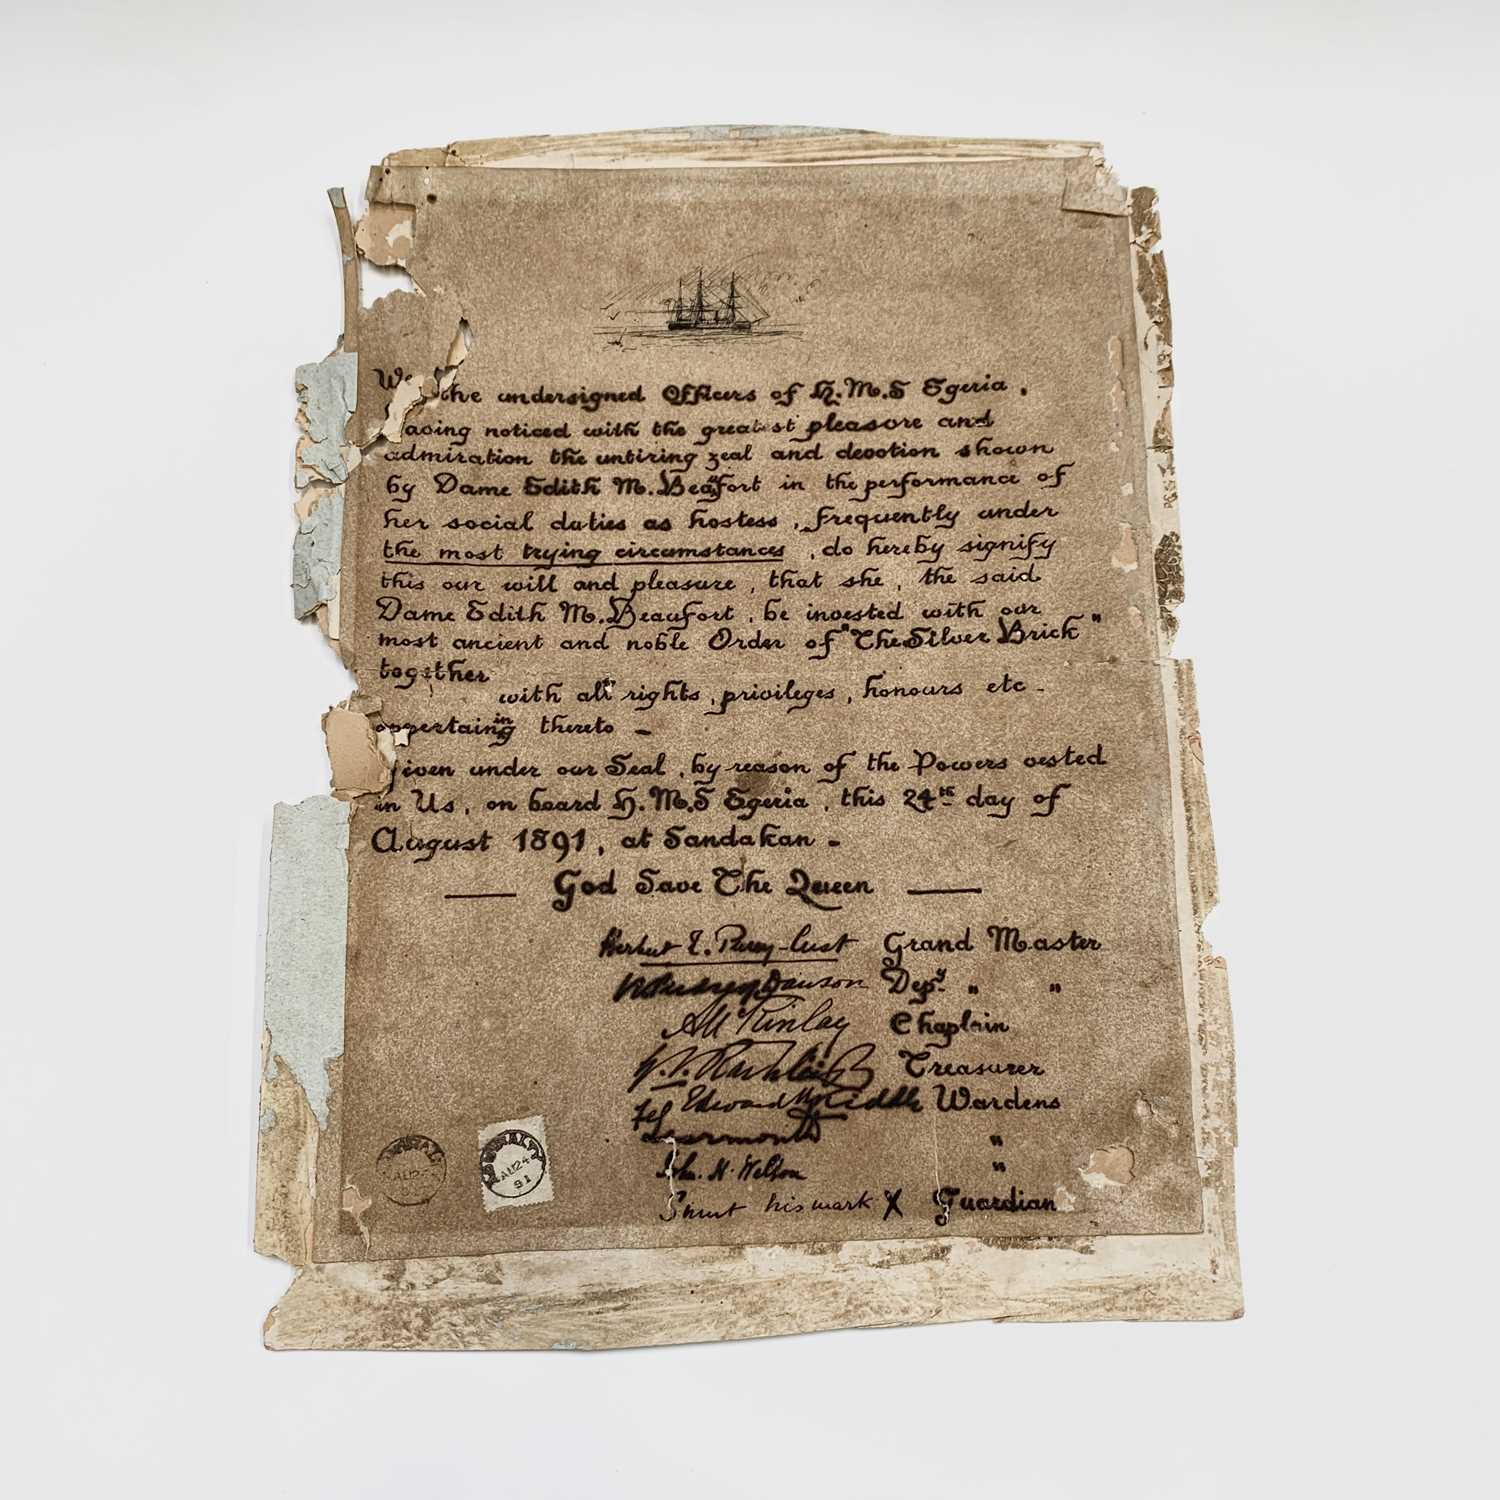 We the undersigned Officers of H.M.S Egeria,
having noticed with the greatest pleasure and
admiration the untiring zeal and devotion shown
by Dame Edith M. Beaufort in the performance of
her social duties as hostess, frequently under
the most trying circumstances, do hereby signify
this our will and pleasure, that she, the said
Dame Edith M. Beaufort, be invested with our
most ancient and noble Order of "The Silver Brick"
together
with all rights, privileges, honours etc -
appertaining thereto -
Given under our Seal, by reason of the Powers vested
in Us, on board H.M.S Egeria, this 24th day of
August 1891, at Sandakan -
God Save The Queen
Herbert E. Purey-Cust Grand Master
Dawson Depy " "
Chaplain
Treasurer
Edward Wardens
Learmonth "
John. N. Weldon "
his mark X Guardian
AU 24
91